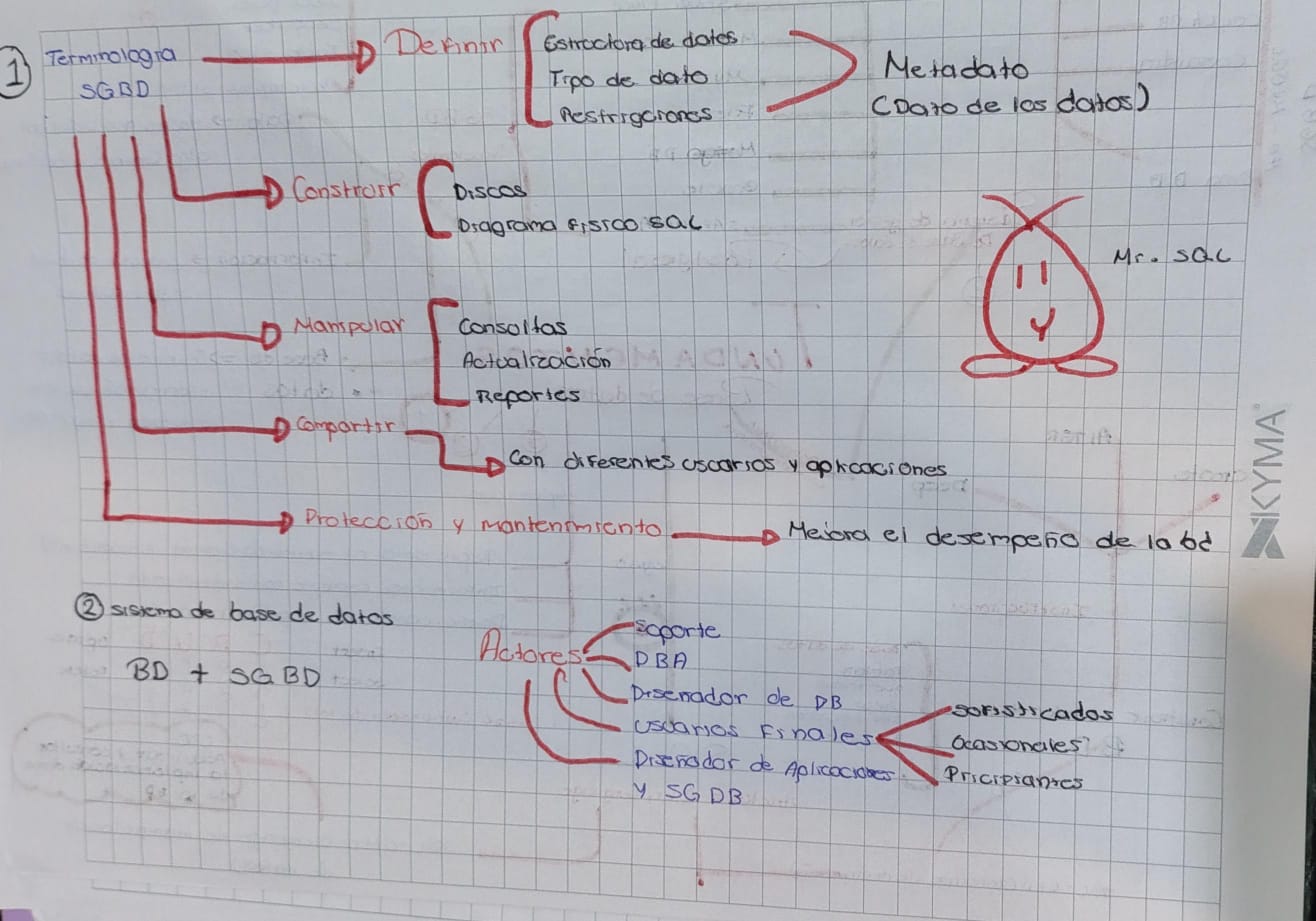 1 Terminologia
SGBD
Definir
Estructura de datos
Tipo de dato
Restrigciones
Metadato
(Dato de los datos)
Construir
Discos
Diagrama fisico sql
Mr. sql
Manipular
Consultas
Actualización
Reportes
Compartir
Con diferentes usuarios y aplicaciones
Protección y mantenimiento
Mejora el desempeño de la bd
KYMA
2 sistema de base de datos
BD + SGBD
Actores
Soporte
DBA
Disenador de DB
Usuarios Finales
Sofisticados
Ocasionales
Pricipiantes
Disenador de Aplicaciones
y SGDB